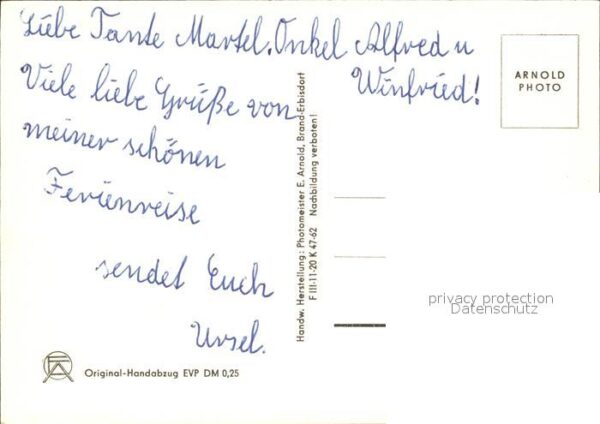 Liebe Tante Martel, Onkel Alfred u
Winfried!
Viele liebe Grüße von
meiner schönen
Ferienreise
sendet Euch
Ursel.
ARNOLD
PHOTO
Handw. Herstellung: Photomeister E. Arnold, Brand-Erbisdorf
F III-11-20 K 47-62 Nachbildung verboten!
privacy protection
Datenschutz
Original-Handabzug EVP DM 0,25